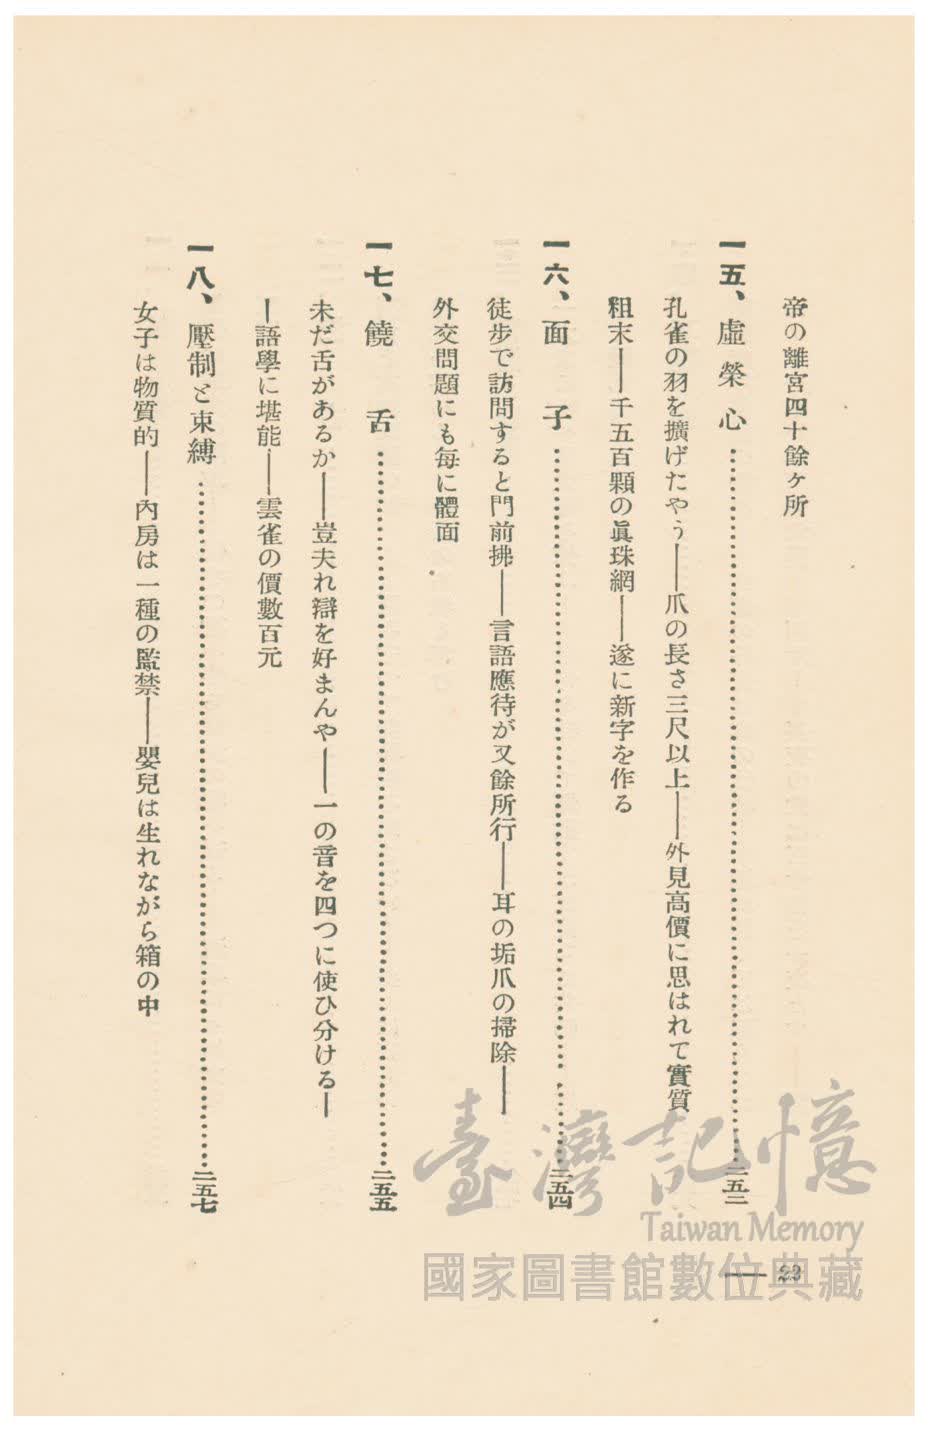 帝の離宮四十餘ヶ所
一五、虛榮心……二五二
孔雀の羽を擴げたやう――爪の長さ三尺以上――外見高價に思はれて實質
粗末――千五百顆の眞珠網――遂に新字を作る
一六、面子……二五四
徒步で訪問すると門前拂――言語應待が又餘所行――耳の垢爪の掃除――
外交問題にも每に體面
一七、饒舌……二五五
未だ舌があるか――豈夫れ辯を好まんや――一の音を四つに使ひ分ける―
―語學に堪能――雲雀の價數百元
一八、壓制と束縛……二五七
女子は物質的――內房は一種の監禁――嬰兒は生れながら箱の中
― 23
臺灣記憶
Taiwan Memory
國家圖書館數位典藏